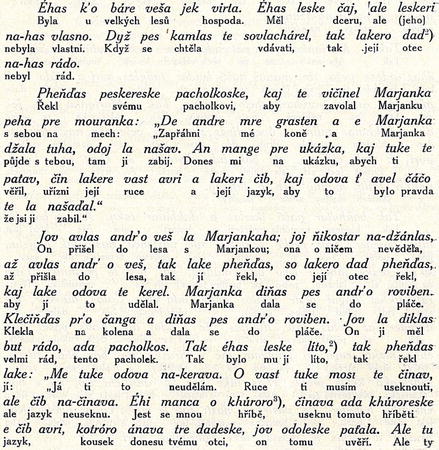 Éhas k'o báre veša jek virta. Éhas leske čaj, ale leskeri
Byla u velkých lesů hospoda. Měl dceru, ale (jeho)
na-has vlasno. Dyž pes kamlas te sovlachárel, tak lakero dad²)
nebyla vlastní. Když se chtěla vdávati, tak její otec
na-has rádo.
nebyl rád.
Pheňďas peskereske pacholkoske, kaj te vičinel Marjanka
Řekl svému pacholkovi, aby zavolal Marjanku
peha pre mouranka: „De andre mre grasten a e Marjanka
s sebou na mech: „Zapřáhni mé koně a Marjanka
džala tuha, odoj la našav. An mange pre ukázka, kaj tuke te
půjde s tebou, tam ji zabij. Dones mi na ukázku, abych ti
patav, čin lakere vast avri a lakeri čib, kaj odova ť avel čáčo
věřil, uřízni její ruce a její jazyk, aby to bylo pravda
te la našaďal.“
že jsi ji zabil.“
Jov avlas andr'o veš la Marjankaha; joj ňikostar na-džánlas,
On přišel do lesa s Marjankou; ona o ničem nevěděla,
až avlas andr'o veš, tak lake pheňďas, so lakero dad pheňďas,
až přišla do lesa, tak jí řekl, co její otec řekl,
kaj lake odova te kerel. Marjanka diňas pes andr'o roviben.
aby jí to udělal. Marjanka dala se do pláče.
Klečiňďas pr'o čanga a diňas pes andr'o roviben. Jov la diklas
Klekla na kolena a dala se do pláče. On ji měl
but rádo, ada pacholkos. Tak éhas leske líto,²) tak pheňďas
velmi rád, tento pacholek. Tak bylo mu jí líto, tak řekl
lake: „Me tuke odova na-kerava. O vast tuke mosť te činav,
jí: „Já ti to neudělám. Ruce ti musím useknouti,
ale čib na-činava. Éhi manca o khúroro³), činava ada khúroreske
ale jazyk neuseknu. Jest se mnou hříbě, useknu tomuto hříběti
e čib avri, kotróro ánava tre dadeske, jov odoleske paťala. Ale tu
jazyk, kousek donesu tvému otci, on tomu uvěří. Ale ty